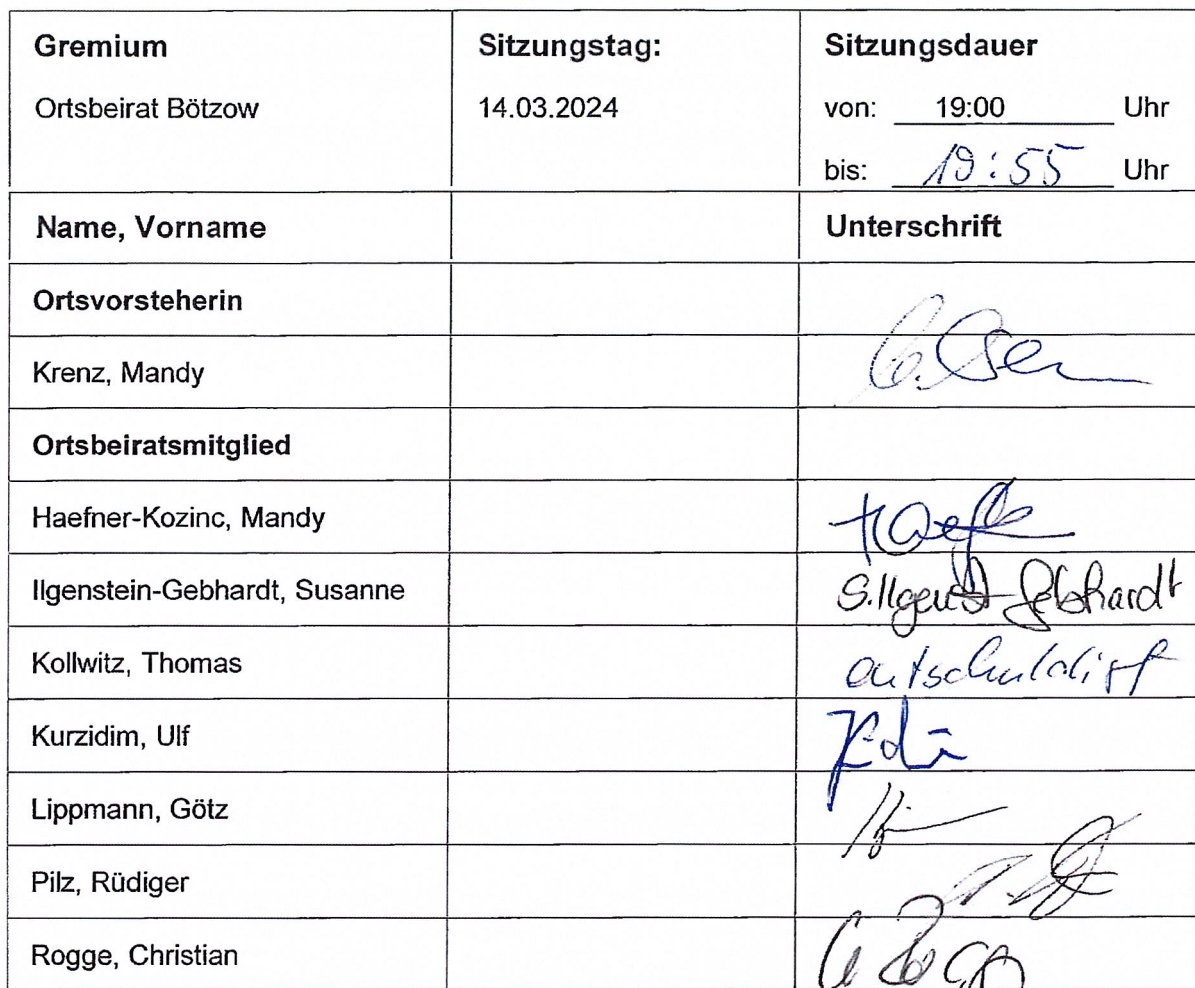 Gremium Sitzungstag: Sitzungsdauer
Ortsbeirat Bötzow 14.03.2024 von: 19:00 Uhr
bis: 19:55 Uhr
Name, Vorname Unterschrift
Ortsvorsteherin
Krenz, Mandy
Ortsbeiratsmitglied
Haefner-Kozinc, Mandy
Ilgenstein-Gebhardt, Susanne S. Ilgenst Gebhardt
Kollwitz, Thomas entschuldigt
Kurzidim, Ulf
Lippmann, Götz
Pilz, Rüdiger
Rogge, Christian